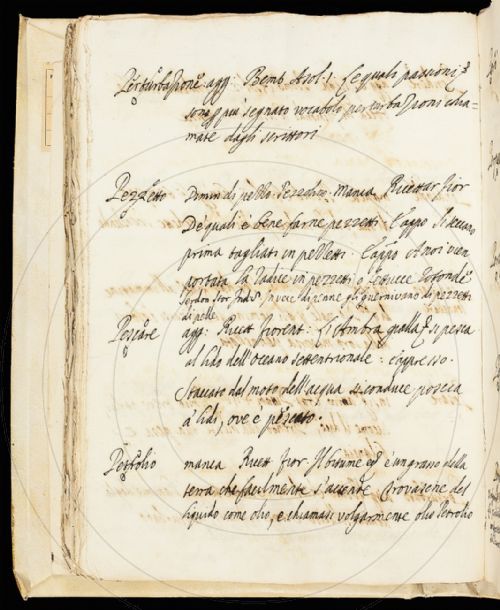 Perturbazione. agg: Bemb. Asol. 1. Le quali passioni p
sono più segnato vocabolo perturbazioni chia=
mate dagli scrittori
Pezzetto Dimin di pezzo. manca. Ricettar fior
De quali è bene farne pezzetti. E appo. si seccano
prima tagliati in pezzetti. E appo. A noi vien
portata la radice in pezzetti o fettucce rotonde
Serdon. Stor. Ind. di penne gli guernivano di pezzetti
di pelle
Pescare agg: Ricett fiorent. L'Ambra gialla si pesca
al lido dell'Oceano settentrionale: e appresso.
Staccato dal moto dell'acqua si conduce poscia
a' lidi, ove è pescato.
Petrolio manca Ricett fior Il bitume è un grasso della
terra che facilmente s'accende trovasene del
liquido come olio, e chiamasi volgarmente olio Petrolio